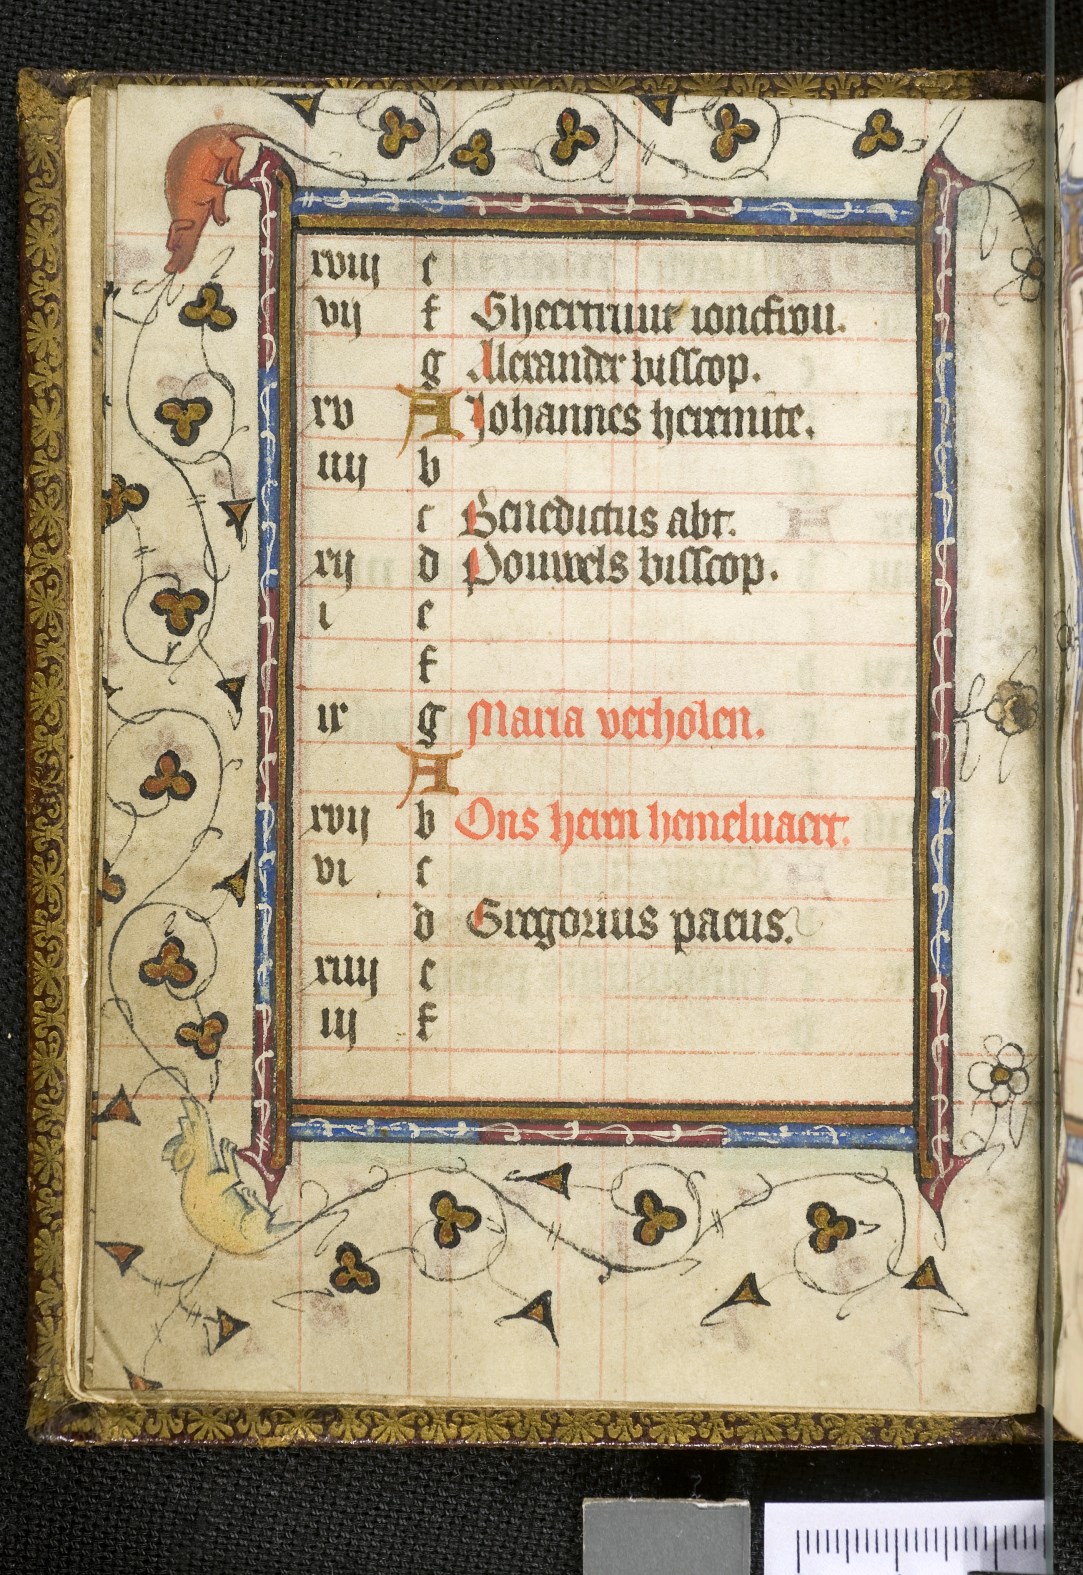 xviij e
vij f Gheertruut ioncfrou.
g Alexander bisscop.
xv A Johannes heremite.
iiij b
c Benedictus abt.
xij d Pouwels bisscop.
i e
f
ix g Maria verholen.
A
xvij b Ons heren hemeluaert.
vi c
d Gregorius paeus.
xiiij e
iij f